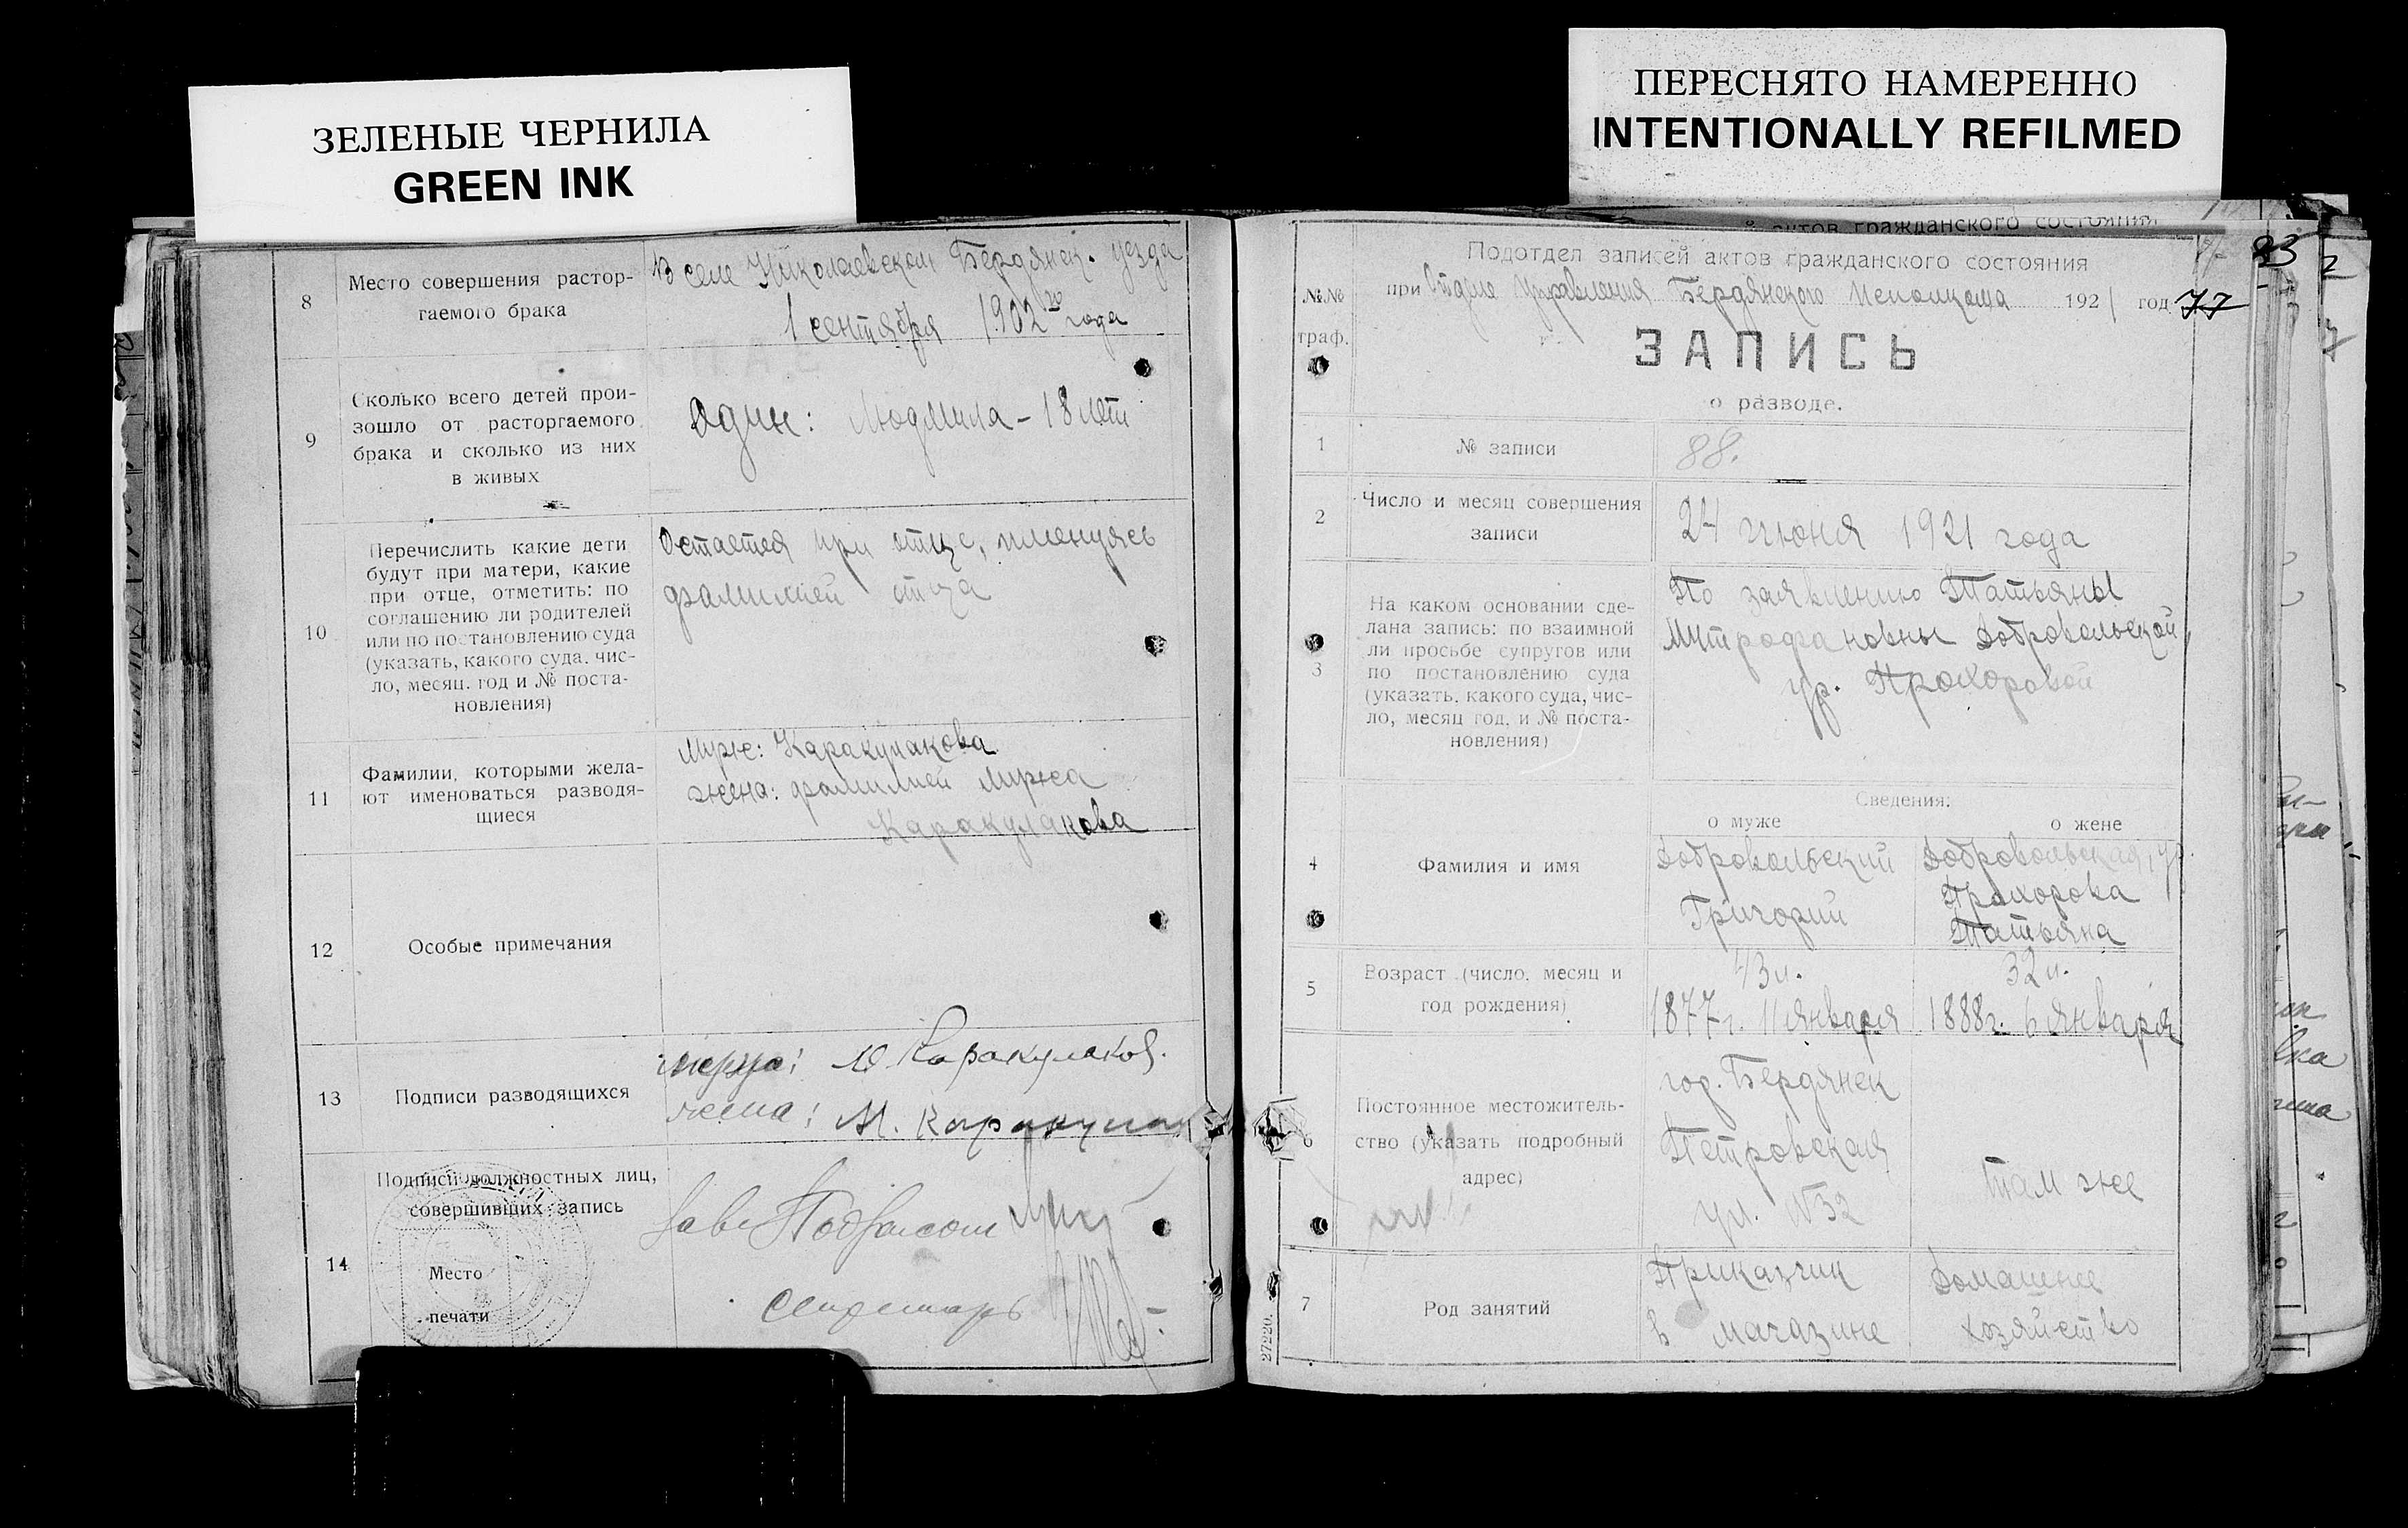 ЗЕЛЕНЫЕ ЧЕРНИЛА
GREEN INK
ПЕРЕСНЯТО НАМЕРЕННО
INTENTIONALLY REFILMED
8
Место совершения растор-
гаемого брака
В селе Николаевском Бердянск. уезда
1 сентября 1902 го года
9
Сколько всего детей прои-
зошло от расторгаемого
брака и сколько из них
в живых
Один: Людмила - 18 лет
10
Перечислить какие дети
будут при матери, какие
при отце, отметить: по
соглашению ли родителей
или по постановлению суда
(указать, какого суда. чис-
ло, месяц. год и № поста-
новления)
Остается при отце, именуясь
фамилией отца
11
Фамилии, которыми жела-
ют именоваться разводя-
щиеся
Муж: Каракулакова
жена: фамилией мужа
Каракулакова
12
Особые примечания
13
Подписи разводящихся
мужа: Каракулаков.
жена: М. Каракулак
14
Подписи должностных лиц,
совершивших запись
Место
печати
Зав Подзагсом
Секретарь
актов гражданского состояния
Подотдел записей актов гражданского состояния
83
№№
граф.
при Отделе Управления Бердянского Исполкома 1921 год
77
ЗАПИСЬ
о разводе.
1
№ записи
88.
2
Число и месяц совершения
записи
24 июня 1921 года
3
На каком основании сде-
лана запись: по взаимной
ли просьбе супругов или
по постановлению суда
(указать. какого суда, чис-
ло, месяц год. и № поста-
новления)
По заявлению Татьяны
Митрофановны Добровольской,
ур. Прохоровой
Сведения:
о муже
о жене
4
Фамилия и имя
Добровольский
Григорий
Добровольская, ур.
Прохорова
Татьяна
5
Возраст (число, месяц и
год рождения)
43 л.
1877 г. 11 января
32 л.
1888 г. 6 января
6
Постоянное местожитель-
ство (указать подробный
адрес)
гор. Бердянск
Петровская
ул. №32
там же
7
Род занятий
Приказчик
в магазине
Домашнее
хозяйство
27220.